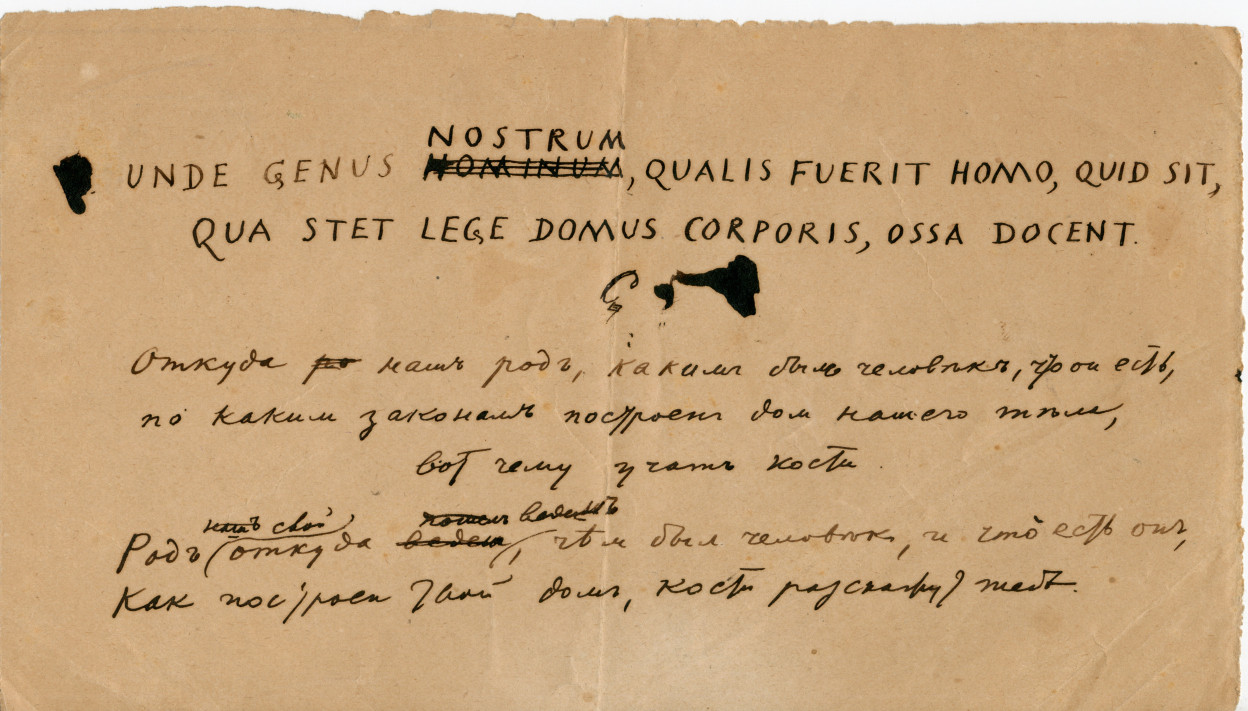 NOSTRUM
UNDE GENUS HOMINUM, QUALIS FUERIT HOMO, QUID SIT,
QUA STET LEGE DOMUS CORPORIS, OSSA DOCENT.
Откуда нашъ родъ, какимъ былъ человѣкъ, что он есть,
по каким законамъ построенъ дом нашего тѣла,
вот чему учатъ кости.
нашъ свой ведемъ
Родъ откуда ведем, чѣм был человѣкъ, и что есть онъ,
Как построен твой домъ, кости расскажут тебѣ.